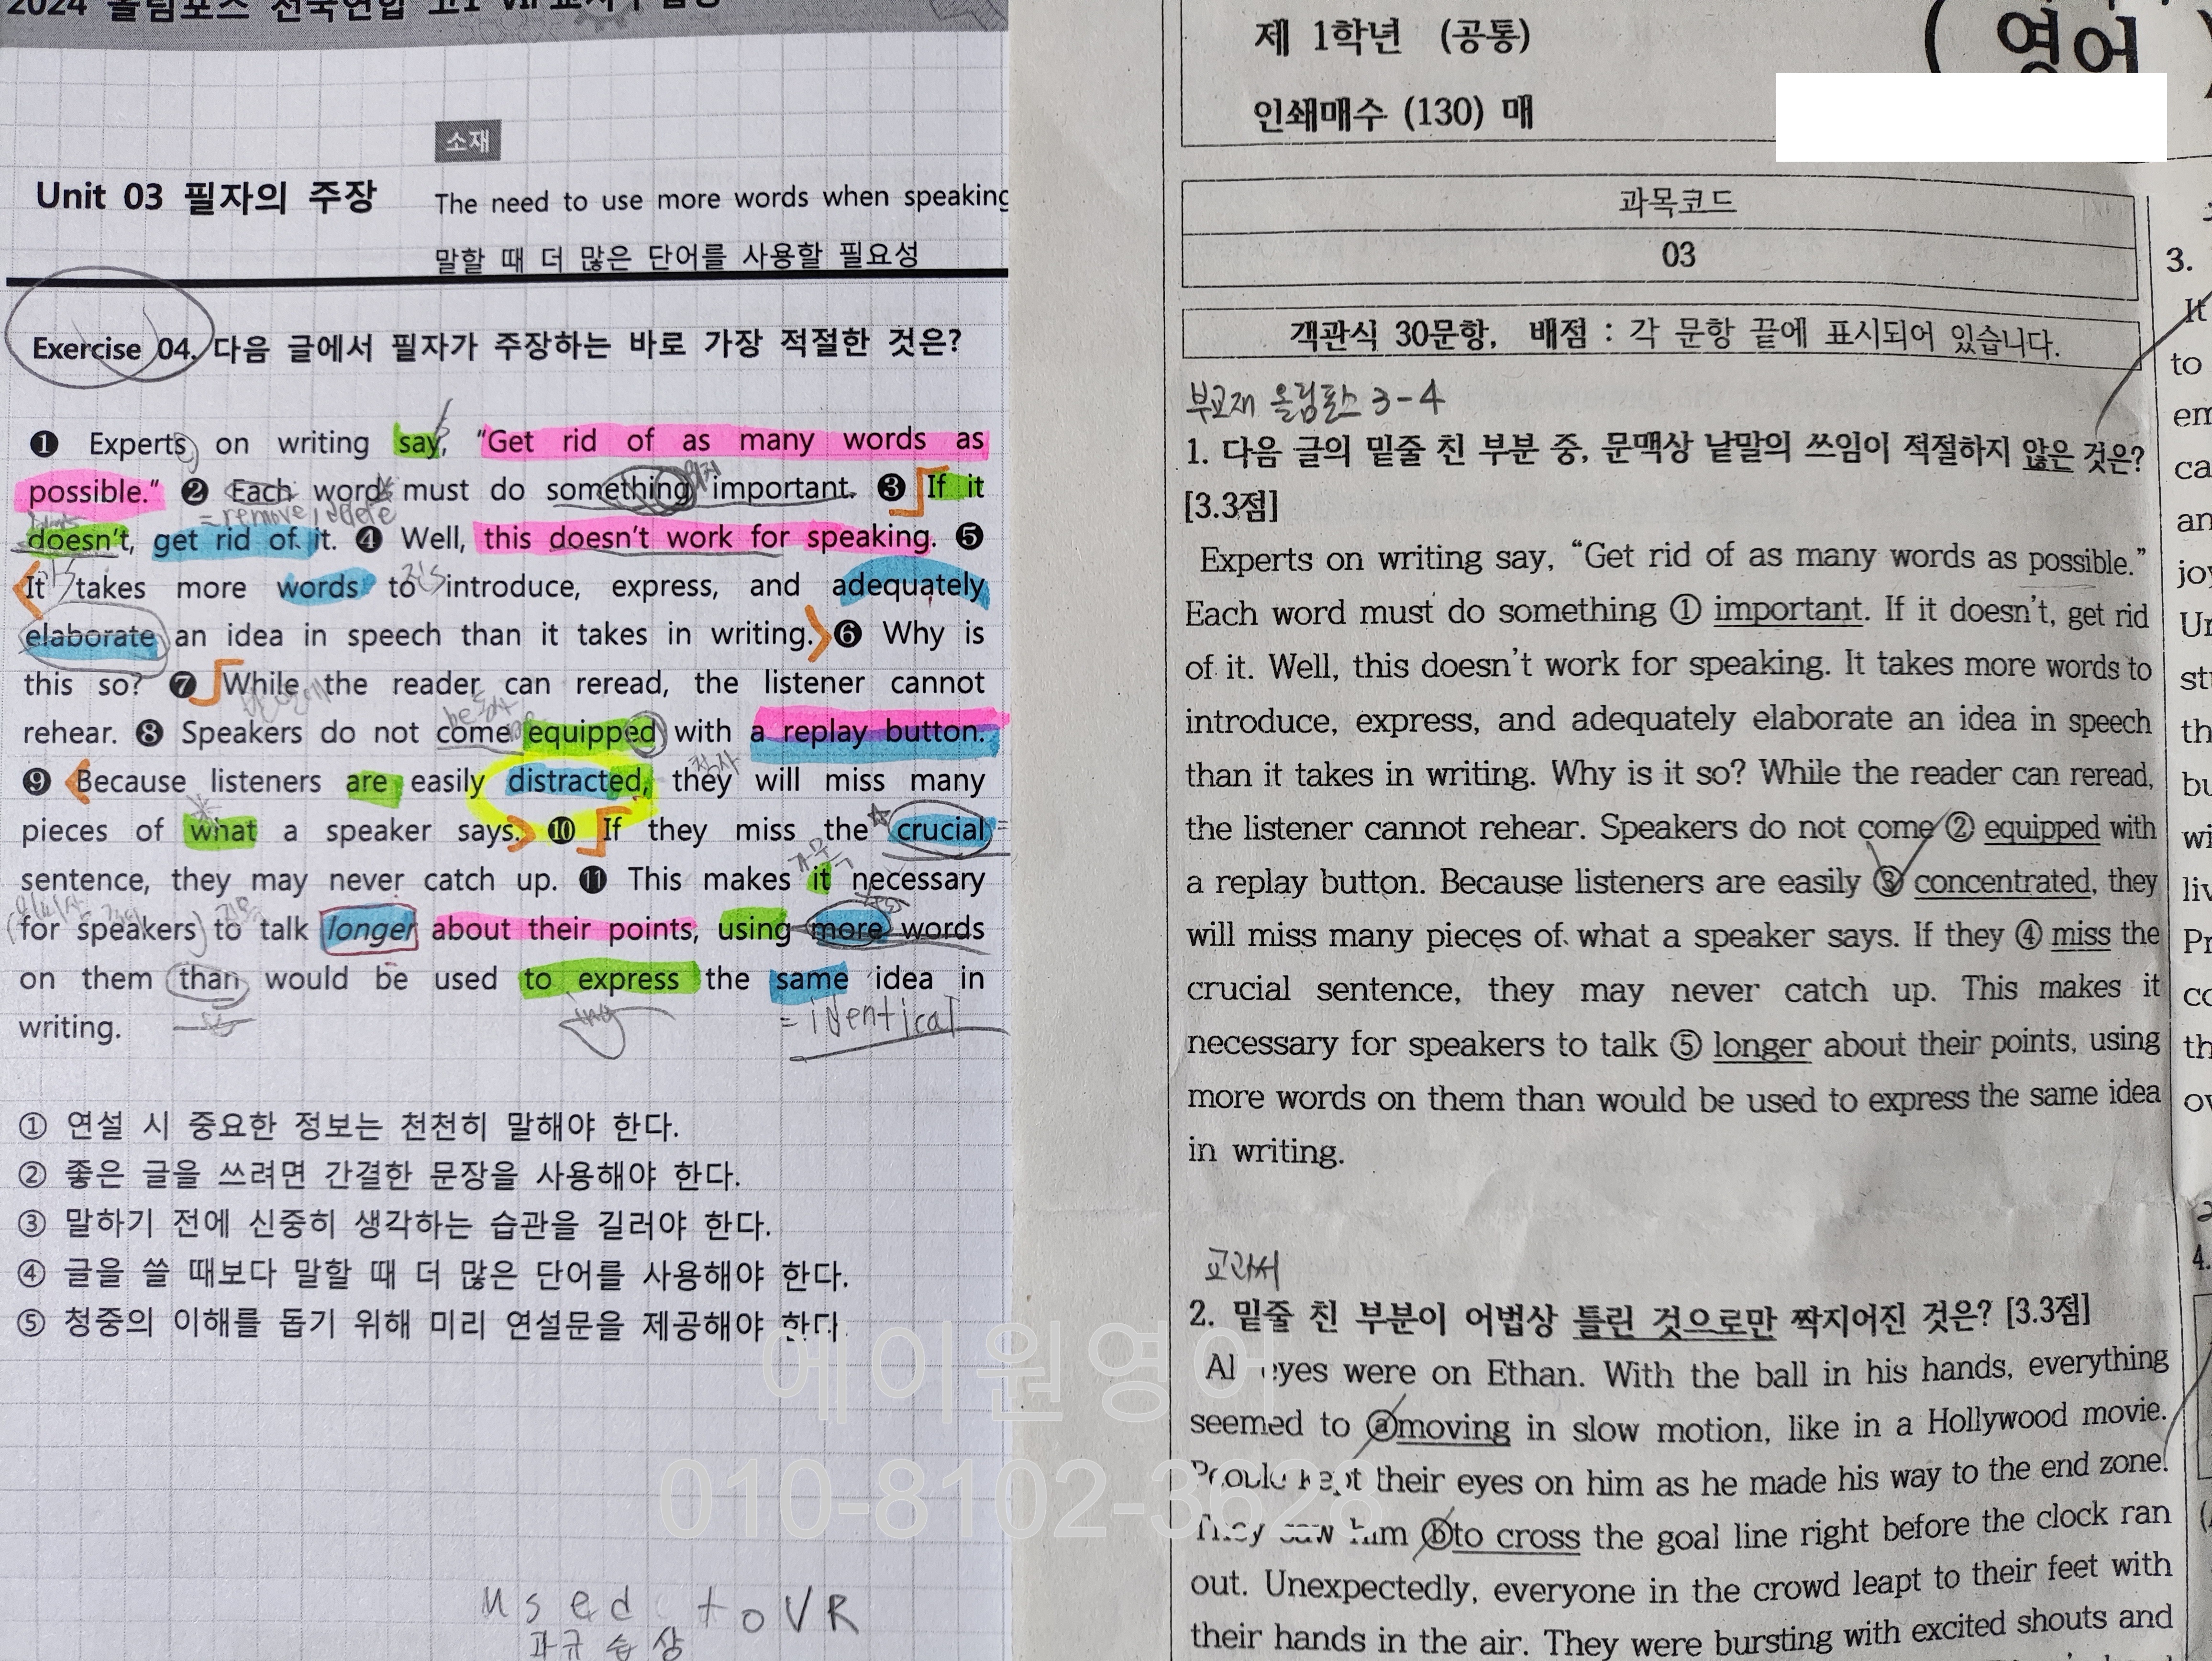 2024 올림포스 전국연합 고1
소재
Unit 03 필자의 주장
The need to use more words when speaking
말할 때 더 많은 단어를 사용할 필요성
Exercise 04. 다음 글에서 필자가 주장하는 바로 가장 적절한 것은?
❶ Experts on writing say, “Get rid of as many words as
possible.” ❷ Each word must do something important. ❸ If it
= remove, delete
doesn’t, get rid of it. ❹ Well, this doesn’t work for speaking. ❺
It takes more words to introduce, express, and adequately
elaborate an idea in speech than it takes in writing. ❻ Why is
this so? ❼ While the reader can reread, the listener cannot
rehear. ❽ Speakers do not come equipped with a replay button.
❾ Because listeners are easily distracted, they will miss many
pieces of what a speaker says. ❿ If they miss the crucial
sentence, they may never catch up. ⓫ This makes it necessary
for speakers to talk longer about their points, using more words
on them than would be used to express the same idea in
writing.
ing
= identical
① 연설 시 중요한 정보는 천천히 말해야 한다.
② 좋은 글을 쓰려면 간결한 문장을 사용해야 한다.
③ 말하기 전에 신중히 생각하는 습관을 길러야 한다.
④ 글을 쓸 때보다 말할 때 더 많은 단어를 사용해야 한다.
⑤ 청중의 이해를 돕기 위해 미리 연설문을 제공해야 한다.
에이원영어
010-8102-3628
used to VR
과규습상
제 1학년 (공통)
인쇄매수 (130) 매
( 영어 )
과목코드
03
객관식 30문항, 배점 : 각 문항 끝에 표시되어 있습니다.
부교재 올림포스 3-4
1. 다음 글의 밑줄 친 부분 중, 문맥상 낱말의 쓰임이 적절하지 않은 것은?
[3.3점]
Experts on writing say, “Get rid of as many words as possible.”
Each word must do something ① important. If it doesn’t, get rid
of it. Well, this doesn’t work for speaking. It takes more words to
introduce, express, and adequately elaborate an idea in speech
than it takes in writing. Why is it so? While the reader can reread,
the listener cannot rehear. Speakers do not come ② equipped with
a replay button. Because listeners are easily ③ concentrated, they
will miss many pieces of what a speaker says. If they ④ miss the
crucial sentence, they may never catch up. This makes it
necessary for speakers to talk ⑤ longer about their points, using
more words on them than would be used to express the same idea
in writing.
교과서
2. 밑줄 친 부분이 어법상 틀린 것으로만 짝지어진 것은? [3.3점]
eyes were on Ethan. With the ball in his hands, everything
seemed to ⓐmoving in slow motion, like in a Hollywood movie.
People kept their eyes on him as he made his way to the end zone.
They saw him ⓑto cross the goal line right before the clock ran
out. Unexpectedly, everyone in the crowd leapt to their feet with
their hands in the air. They were bursting with excited shouts and
3.
It
to
4.